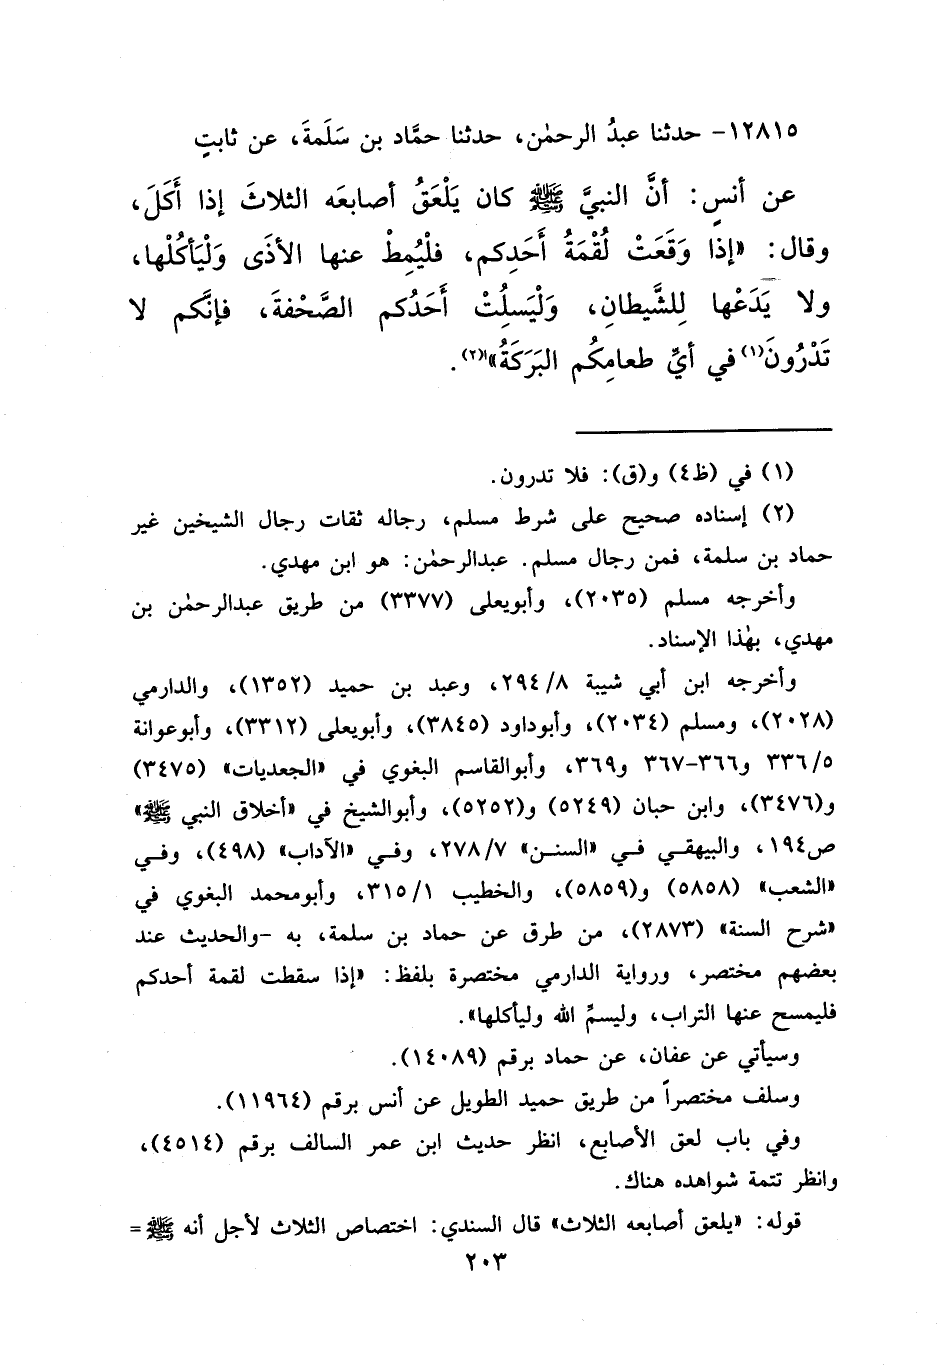 ١٢٨١٥- حدثنا عبدُ الرحمٰن، حدثنا حمَّاد بن سَلَمةَ، عن ثابتٍ
عن أنسٍ: أنَّ النبيَّ ﷺ كان يَلْعَقُ أصابعَه الثلاثَ إذا أَكَلَ،
وقال: «إذا وَقَعَتْ لُقْمَةُ أَحَدِكم، فلْيُمِطْ عنها الأذَى وَلْيَأكُلْها،
ولا يَدَعْها لِلشَّيطانِ، وَلْيَسلِتْ أَحَدُكم الصَّحْفةَ، فإنَّكم لا
تَدْرُونَ(١) في أيِّ طعامِكُم البَرَكَةُ»(٢).
(١) في (ظ٤) و(ق): فلا تدرون.
(٢) إسناده صحيح على شرط مسلم، رجاله ثقات رجال الشيخين غير
حماد بن سلمة، فمن رجال مسلم. عبدالرحمٰن: هو ابن مهدي.
وأخرجه مسلم (٢٠٣٥)، وأبويعلى (٣٣٧٧) من طريق عبدالرحمٰن بن
مهدي، بهٰذا الإسناد.
وأخرجه ابن أبي شيبة ٢٩٤/٨، وعبد بن حميد (١٣٥٢)، والدارمي
(٢٠٢٨)، ومسلم (٢٠٣٤)، وأبوداود (٣٨٤٥)، وأبويعلى (٣٣١٢)، وأبوعوانة
٣٣٦/٥ و٣٦٦-٣٦٧ و٣٦٩، وأبوالقاسم البغوي في «الجعديات» (٣٤٧٥)
و(٣٤٧٦)، وابن حبان (٥٢٤٩) و(٥٢٥٢)، وأبوالشيخ في «أخلاق النبي ﷺ»
ص١٩٤، والبيهقي في «السنن» ٢٧٨/٧، وفي «الآداب» (٤٩٨)، وفي
«الشعب» (٥٨٥٨) و(٥٨٥٩)، والخطيب ٣١٥/١، وأبومحمد البغوي في
«شرح السنة» (٢٨٧٣)، من طرق عن حماد بن سلمة، به -والحديث عند
بعضهم مختصر، ورواية الدارمي مختصرة بلفظ: «إذا سقطت لقمة أحدكم
فليمسح عنها التراب، وليسمِّ الله وليأكلها».
وسيأتي عن عفان، عن حماد برقم (١٤٠٨٩).
وسلف مختصراً من طريق حميد الطويل عن أنس برقم (١١٩٦٤).
وفي باب لعق الأصابع، انظر حديث ابن عمر السالف برقم (٤٥١٤)،
وانظر تتمة شواهده هناك.
قوله: «يلعق أصابعه الثلاث» قال السندي: اختصاص الثلاث لأجل أنه ﷺ =
٢٠٣